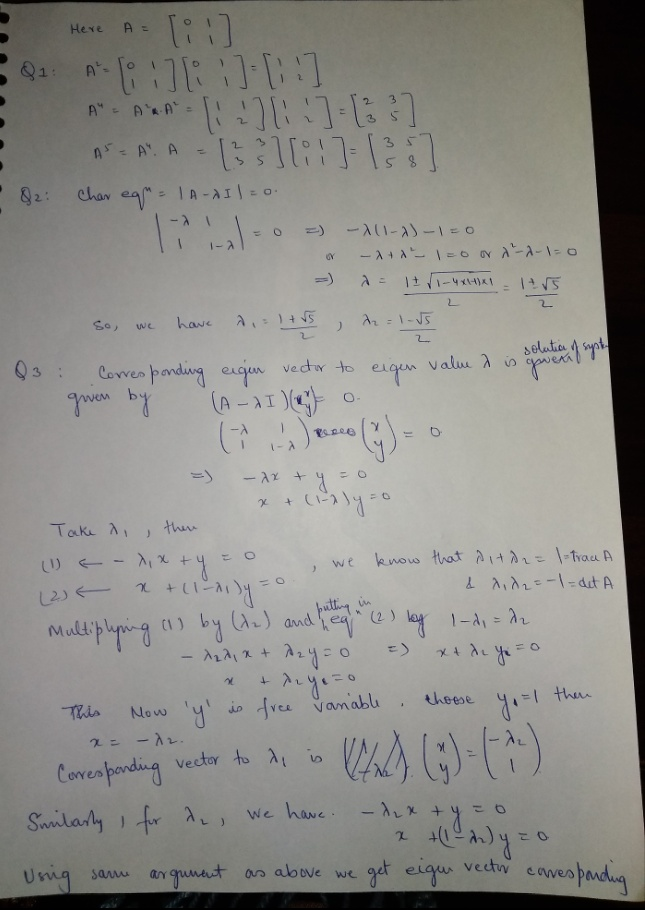 Here A = [0 1; 1 1]
Q1: A² = [0 1; 1 1][0 1; 1 1] = [1 1; 1 2]
A⁴ = A².A² = [1 1; 1 2][1 1; 1 2] = [2 3; 3 5]
A⁵ = A⁴. A = [2 3; 3 5][0 1; 1 1] = [3 5; 5 8]
Q2: Char eqⁿ = |A-λI| = 0.
|-λ 1; 1 1-λ| = 0 => -λ(1-λ) -1 = 0
or -λ+λ²- 1=0 or λ²-λ-1=0
=> λ = (1 ± √(1-4×(-1)×1))/2 = (1±√5)/2
So, we have λ₁ = (1+√5)/2 , λ₂ = (1-√5)/2
Q3 : Corresponding eigen vector to eigen value λ is solution of syst
given by (A-λI)(x y) = 0.
(-λ 1; 1 1-λ) (x; y) = 0
=> -λx + y = 0
x + (1-λ)y = 0
Take λ₁ , then
(1) ← - λ₁x + y = 0 , we know that λ₁+λ₂ = 1 = trace A
(2) ← x + (1-λ₁)y = 0 & λ₁λ₂ = -1 = det A
Multiplying (1) by (λ₂) and putting in eqⁿ (2) by 1-λ₁ = λ₂
- λ₂λ₁x + λ₂y = 0 => x + λ₂y = 0
x + λ₂y = 0
Now 'y' is free variable. choose y = 1 then
x = -λ₂.
Corresponding vector to λ₁ is (x; y) = (-λ₂; 1)
Similarly, for λ₂, we have. -λ₂x + y = 0
x +(1-λ₂)y = 0
Using same argument as above we get eigen vector corresponding